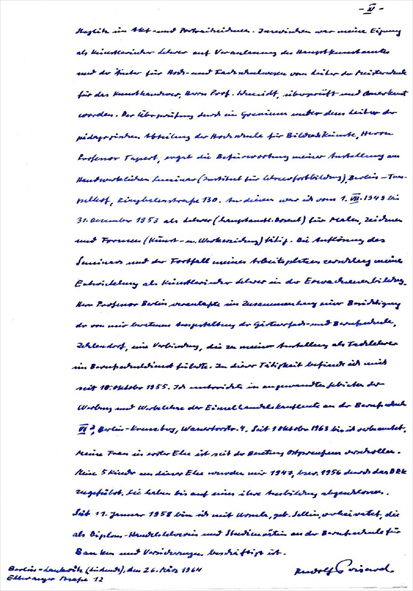 - IV -
Steglitz in Akt- und Portraitzeichnen. Inzwischen war meine Eignung
als Künstlerischer Lehrer auf Veranlassung des Hauptkunstamtes
und der Ämter für Hoch- und Fachschulwesen vom Leiter der Meisterschule
für das Kunsthandwerk, Herrn Prof. Schmidt, überprüft und anerkannt
worden. Der Überprüfung durch ein Gremium unter dem Leiter der
pädagogischen Abteilung der Hochschule für Bildende Künste, Herrn
Professor Tappert, folgte die Befürwortung meiner Anstellung am
Handwerklichen Seminar (Institut für Lehrerfortbildung), Berlin-Tem-
pelhof, Ringbahnstraße 130. An diesem war ich vom 1. VII. 1949 bis
31. Dezember 1953 als Lehrer (hauptamtl. Dozent) für Malen, Zeichnen
und Formen (Kunst- u. Werkerziehung) tätig. Die Auflösung des
Seminars und der Fortfall meines Arbeitsplatzes meine
Entwicklung als Künstlerischer Lehrer in der Erwachsenenbildung.
Herr Professor Berlin veranlaßte im Zusammenhang einer Besichtigung
der von mir Ausgestaltung der Gärtnerfach- und Berufsschule,
Zehlendorf, eine Verbindung, die zu meiner Anstellung als Fachlehrer
im Berufsschuldienst führte. In dieser Tätigkeit befinde ich mich
seit 10. Oktober 1955. Ich unterrichte im angewandten Gebieten der
Werbung und Werblehre der Einzelhandelskaufleute an der Berufsschule
VI, Berlin-Kreuzberg, Wassertorstr. 4. Seit 1 Oktober 1963 bin ich beamtet.
Meine Frau in erster Ehe ist seit der Besetzung Ostpreußens verschollen.
Meine 5 Kinder aus dieser Ehe wurden mir 1947, bzw. 1956 durch das DRK
zugeführt. Sie haben bis auf eines ihre Ausbildung abgeschlossen.
Seit 11. Januar 1958 bin ich mit Ursula, geb. Sellin, verheiratet, die
als Diplom-Handelslehrerin und Studienrätin an der Berufsschule für
Banken und Versicherungen beschäftigt ist.
Berlin-Lankwitz, den 26. März 1964
Ellwanger Straße 12
Rudolf